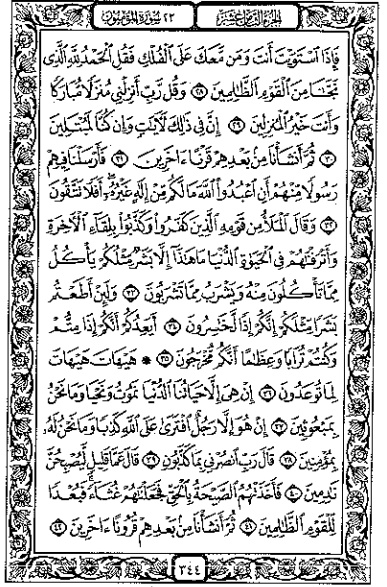 الجزء الثامن عشر ٢٣ سورة المؤمنون
فَإِذَا ٱسْتَوَيْتَ أَنتَ وَمَن مَّعَكَ عَلَى ٱلْفُلْكِ فَقُلِ ٱلْحَمْدُ لِلَّهِ ٱلَّذِى
نَجَّىٰنَا مِنَ ٱلْقَوْمِ ٱلظَّـٰلِمِينَ ٢٨ وَقُل رَّبِّ أَنزِلْنِى مُنزَلًا مُّبَارَكًا
وَأَنتَ خَيْرُ ٱلْمُنزِلِينَ ٢٩ إِنَّ فِى ذَٰلِكَ لَـَٔايَـٰتٍ وَإِن كُنَّا لَمُبْتَلِينَ
٣٠ ثُمَّ أَنشَأْنَا مِنۢ بَعْدِهِمْ قَرْنًا ءَاخَرِينَ ٣١ فَأَرْسَلْنَا فِيهِمْ
رَسُولًا مِّنْهُمْ أَنِ ٱعْبُدُوا۟ ٱللَّهَ مَا لَكُم مِّنْ إِلَـٰهٍ غَيْرُهُۥٓ أَفَلَا تَتَّقُونَ
٣٢ وَقَالَ ٱلْمَلَأُ مِن قَوْمِهِ ٱلَّذِينَ كَفَرُوا۟ وَكَذَّبُوا۟ بِلِقَآءِ ٱلْـَٔاخِرَةِ
وَأَتْرَفْنَـٰهُمْ فِى ٱلْحَيَوٰةِ ٱلدُّنْيَا مَا هَـٰذَآ إِلَّا بَشَرٌ مِّثْلُكُمْ يَأْكُلُ
مِمَّا تَأْكُلُونَ مِنْهُ وَيَشْرَبُ مِمَّا تَشْرَبُونَ ٣٣ وَلَئِنْ أَطَعْتُم
بَشَرًا مِّثْلَكُمْ إِنَّكُمْ إِذًا لَّخَـٰسِرُونَ ٣٤ أَيَعِدُكُمْ أَنَّكُمْ إِذَا مِتُّمْ
وَكُنتُمْ تُرَابًا وَعِظَـٰمًا أَنَّكُم مُّخْرَجُونَ ٣٥ ۞ هَيْهَاتَ هَيْهَاتَ
لِمَا تُوعَدُونَ ٣٦ إِنْ هِىَ إِلَّا حَيَاتُنَا ٱلدُّنْيَا نَمُوتُ وَنَحْيَا وَمَا نَحْنُ
بِمَبْعُوثِينَ ٣٧ إِنْ هُوَ إِلَّا رَجُلٌ ٱفْتَرَىٰ عَلَى ٱللَّهِ كَذِبًا وَمَا نَحْنُ لَهُۥ
بِمُؤْمِنِينَ ٣٨ قَالَ رَبِّ ٱنصُرْنِى بِمَا كَذَّبُونِ ٣٩ قَالَ عَمَّا قَلِيلٍ لَّيُصْبِحُنَّ
نَـٰدِمِينَ ٤٠ فَأَخَذَتْهُمُ ٱلصَّيْحَةُ بِٱلْحَقِّ فَجَعَلْنَـٰهُمْ غُثَآءً فَبُعْدًا
لِّلْقَوْمِ ٱلظَّـٰلِمِينَ ٤١ ثُمَّ أَنشَأْنَا مِنۢ بَعْدِهِمْ قُرُونًا ءَاخَرِينَ ٤٢
٣٤٤